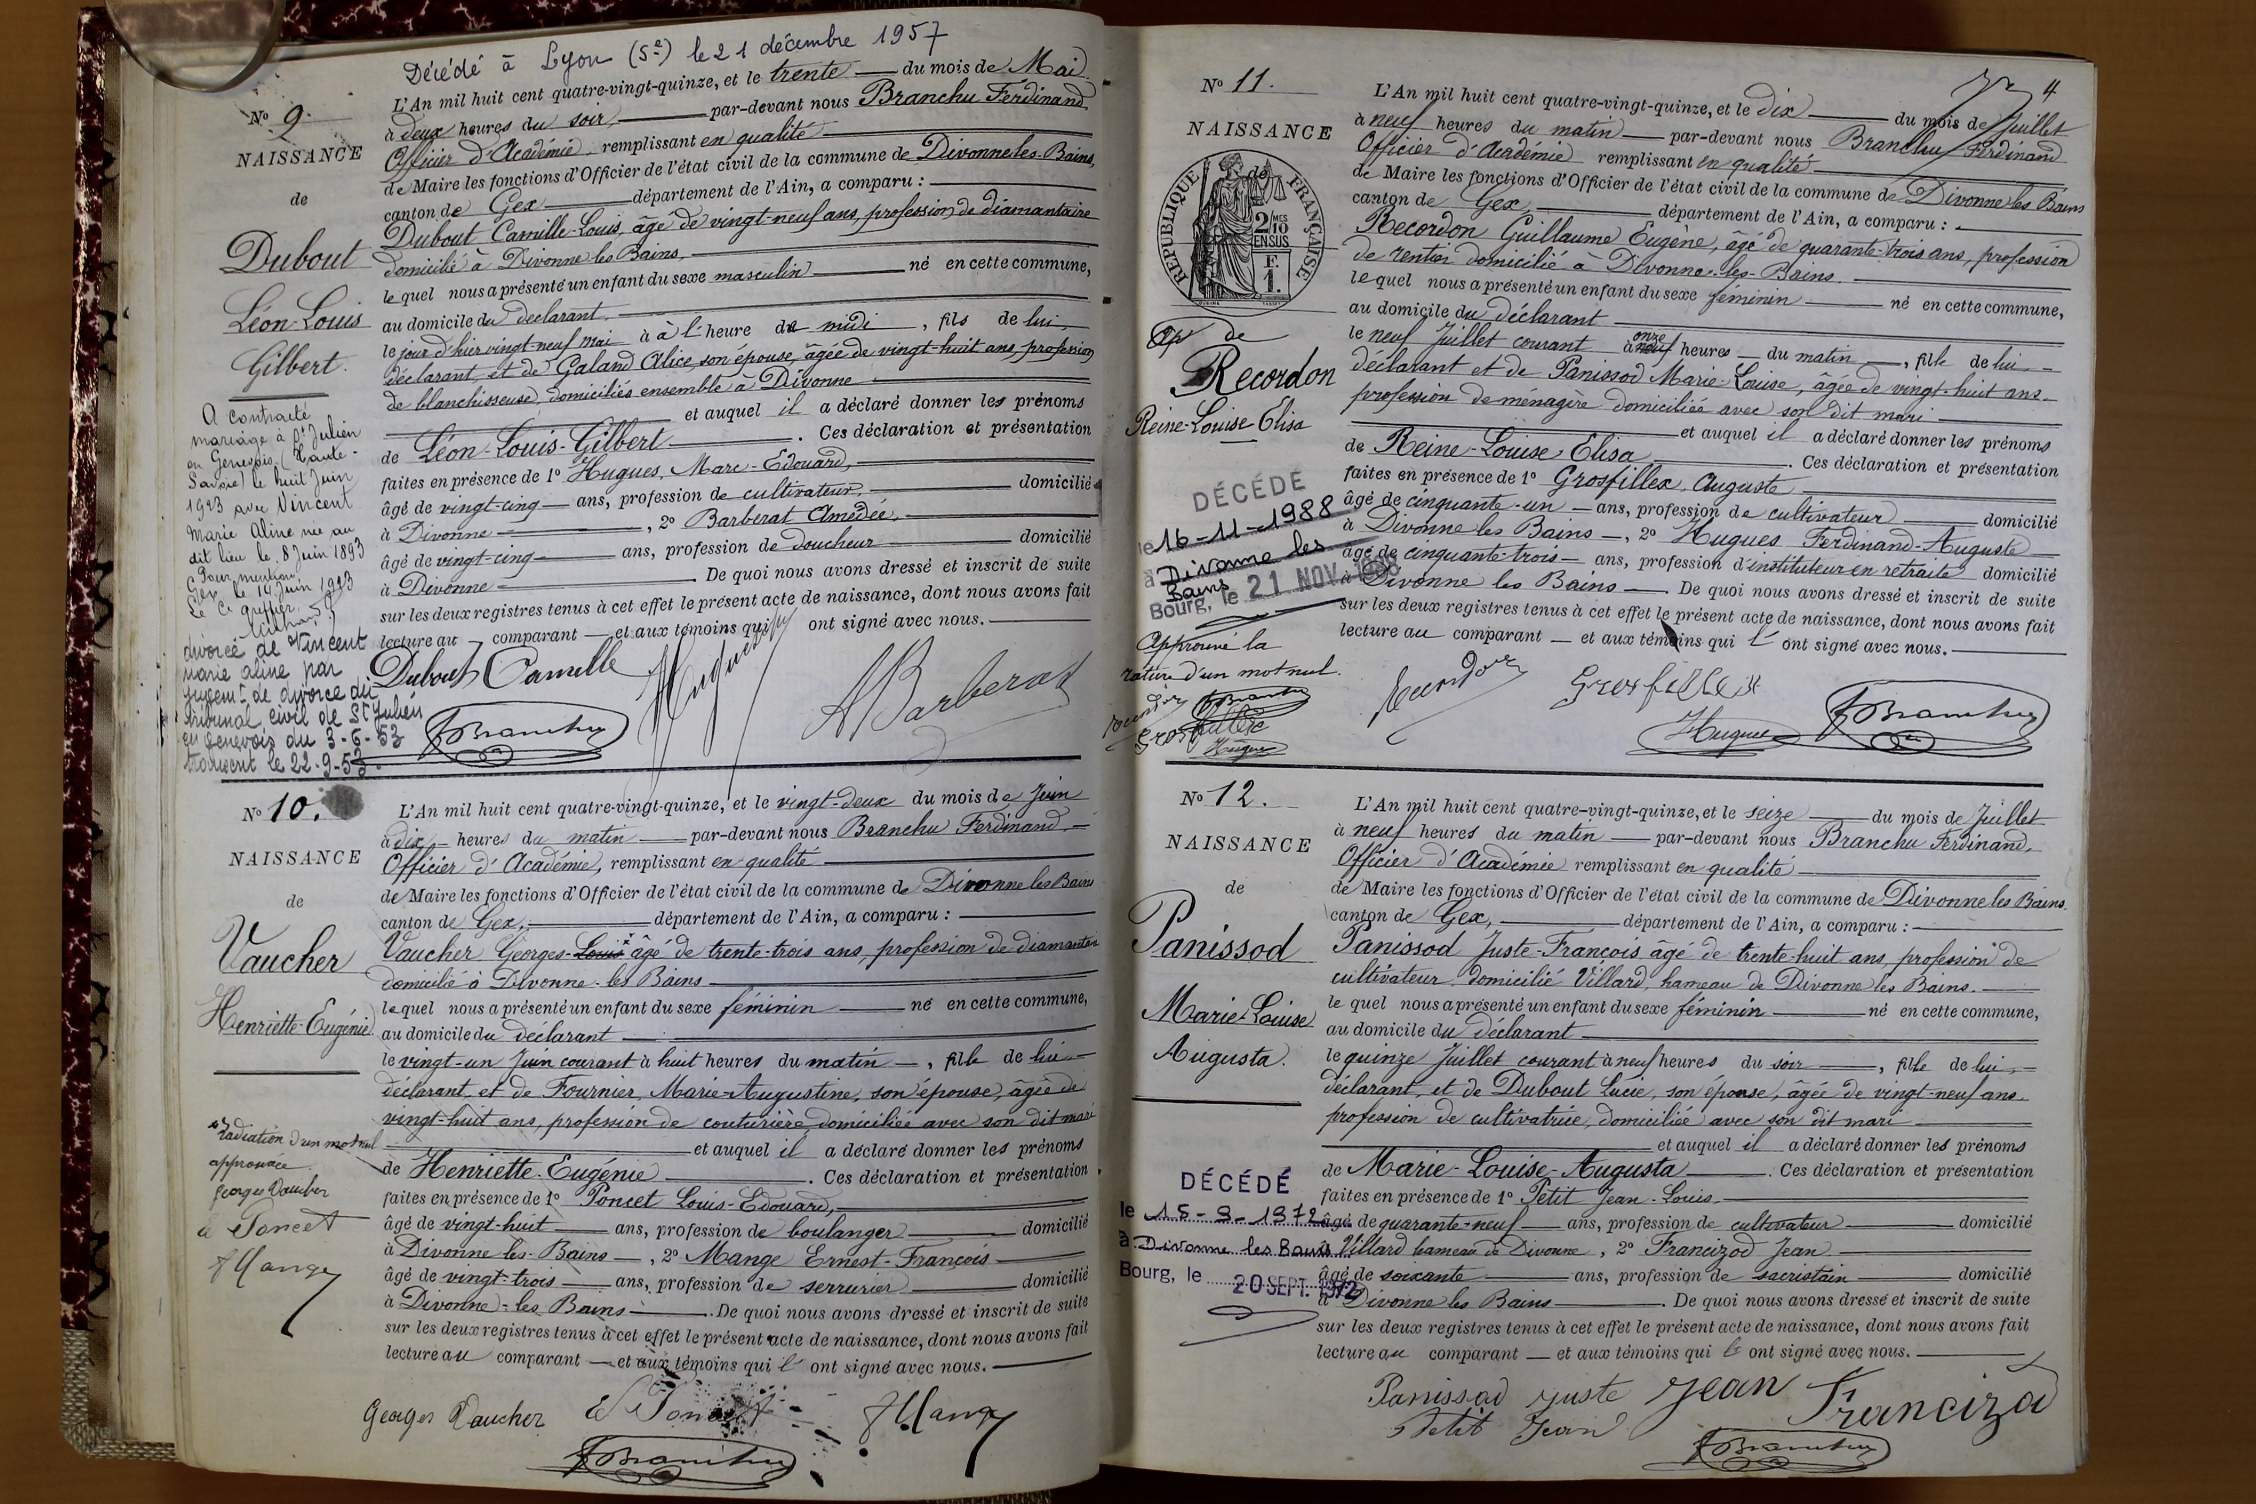 Décédé à Lyon (5e) le 21 décembre 1957
No 9.
NAISSANCE
de
Dubout
Léon-Louis
Gilbert.
A contracté
mariage à St Julien
en Genevois (Haute-
Savoie) le huit Juin
1923 avec Vincent
Marie Aline née au
dit lieu le 8 Juin 1893
Pour mention
Gex, le 14 Juin 1923
Le Ce greffier
divorcé de Vincent
marie aline par
jugemt de divorce du
tribunal civil de St Julien
en Genevois du 3-6-53
le 22-9-53.
L'An mil huit cent quatre-vingt-quinze, et le trente du mois de Mai
à deux heures du soir, par-devant nous Branchu Ferdinand
Officier d'Académie, remplissant en qualité
de Maire les fonctions d'Officier de l'état civil de la commune de Divonne les Bains,
canton de Gex département de l'Ain, a comparu :
Dubout Camille-Louis, âgé de vingt-neuf ans, profession de diamantaire
domicilié à Divonne les Bains,
le quel nous a présenté un enfant du sexe masculin né en cette commune,
au domicile du déclarant
le jour d'hier vingt-neuf mai à à l'heure de midi, fils de lui,
déclarant, et de Galand Alice, son épouse, âgée de vingt-huit ans, profession
de blanchisseuse, domiciliés ensemble à Divonne
et auquel il a déclaré donner les prénoms
de Léon-Louis-Gilbert. Ces déclaration et présentation
faites en présence de 1o Hugues, Marc-Edouard,
âgé de vingt-cinq ans, profession de cultivateur, domicilié
à Divonne, 2o Barberat Amédée,
âgé de vingt-cinq ans, profession de doucheur domicilié
à Divonne. De quoi nous avons dressé et inscrit de suite
sur les deux registres tenus à cet effet le présent acte de naissance, dont nous avons fait
lecture au comparant et aux témoins qui ont signé avec nous.
Dubout Camille Hugues A Barberat
F Branchu
No 10.
NAISSANCE
de
Vaucher
Henriette-Eugénie
radiation d'un mot nul
approuvée
Georges Vaucher
Poncet
Mange
L'An mil huit cent quatre-vingt-quinze, et le vingt-deux du mois de Juin
à dix heures du matin par-devant nous Branchu Ferdinand,
Officier d'Académie, remplissant en qualité
de Maire les fonctions d'Officier de l'état civil de la commune de Divonne les Bains
canton de Gex, département de l'Ain, a comparu :
Vaucher Georges-Louis âgé de trente-trois ans, profession de diamantaire
domicilié à Divonne-les Bains
le quel nous a présenté un enfant du sexe féminin né en cette commune,
au domicile du déclarant
le vingt-un Juin courant à huit heures du matin, fille de lui
déclarant, et de Fournier, Marie-Augustine, son épouse, âgée de
vingt-huit ans, profession de couturière, domiciliée avec son dit mari
et auquel il a déclaré donner les prénoms
de Henriette-Eugénie. Ces déclaration et présentation
faites en présence de 1o Poncet Louis-Edouard,
âgé de vingt-huit ans, profession de boulanger domicilié
à Divonne les-Bains, 2o Mange Ernest-François
âgé de vingt-trois ans, profession de serrurier domicilié
à Divonne-les Bains. De quoi nous avons dressé et inscrit de suite
sur les deux registres tenus à cet effet le présent acte de naissance, dont nous avons fait
lecture au comparant et aux témoins qui l' ont signé avec nous.
Georges Vaucher Poncet Mange
F Branchu
4
No 11.
NAISSANCE
de
RÉPUBLIQUE FRANÇAISE
2/10 MES
EN SUS
F.
1.
de
Recordon
Reine-Louise-Elisa
DÉCÉDÉ
le 16-11-1988
à Divonne les
Bains
Bourg, le 21 NOV. 1988
Approuvé la
rature d'un mot nul.
Recordon
F Branchu
Grosfillex
Hugues
L'An mil huit cent quatre-vingt-quinze, et le dix du mois de Juillet
à neuf heures du matin par-devant nous Branchu Ferdinand
Officier d'Académie remplissant en qualité
de Maire les fonctions d'Officier de l'état civil de la commune de Divonne les Bains
canton de Gex, département de l'Ain, a comparu :
Recordon Guillaume Eugène, âgé de quarante-trois ans, profession
de rentier domicilié à Divonne-les-Bains.
le quel nous a présenté un enfant du sexe féminin né en cette commune,
au domicile du déclarant
le neuf Juillet courant à neuf onze heures du matin, fille de lui
déclarant et de Panissod Marie-Louise, âgée de vingt-huit ans
profession de ménagère domiciliée avec son dit mari
et auquel il a déclaré donner les prénoms
de Reine-Louise-Elisa. Ces déclaration et présentation
faites en présence de 1o Grosfillex Auguste
âgé de cinquante-un ans, profession de cultivateur domicilié
à Divonne les Bains, 2o Hugues Ferdinand-Auguste
âgé de cinquante-trois ans, profession d'instituteur en retraite domicilié
à Divonne les Bains. De quoi nous avons dressé et inscrit de suite
sur les deux registres tenus à cet effet le présent acte de naissance, dont nous avons fait
lecture au comparant et aux témoins qui l' ont signé avec nous.
Recordon Grosfillex
Hugues F Branchu
No 12.
NAISSANCE
de
Panissod
Marie-Louise
Augusta.
DÉCÉDÉ
le 15-9-1972
à Divonne les Bains
Bourg, le 20 SEPT. 1972
L'An mil huit cent quatre-vingt-quinze, et le seize du mois de Juillet
à neuf heures du matin par-devant nous Branchu Ferdinand,
Officier d'Académie remplissant en qualité
de Maire les fonctions d'Officier de l'état civil de la commune de Divonne les Bains.
canton de Gex, département de l'Ain, a comparu :
Panissod Juste-François, âgé de trente-huit ans, profession de
cultivateur domicilié Villard, hameau de Divonne les Bains.
le quel nous a présenté un enfant du sexe féminin né en cette commune,
au domicile du déclarant
le quinze Juillet courant à neuf heures du soir, fille de lui,
déclarant, et de Dubout Lucie, son épouse, âgée de vingt-neuf ans
profession de cultivatrice, domiciliée avec son dit mari
et auquel il a déclaré donner les prénoms
de Marie-Louise-Augusta. Ces déclaration et présentation
faites en présence de 1o Petit Jean-Louis
âgé de quarante-neuf ans, profession de cultivateur domicilié
à Villard hameau de Divonne, 2o Francizod Jean
âgé de soixante ans, profession de sacristain domicilié
à Divonne les Bains. De quoi nous avons dressé et inscrit de suite
sur les deux registres tenus à cet effet le présent acte de naissance, dont nous avons fait
lecture au comparant et aux témoins qui l' ont signé avec nous.
Panissod juste jean Francizod
Petit Jean
F Branchu